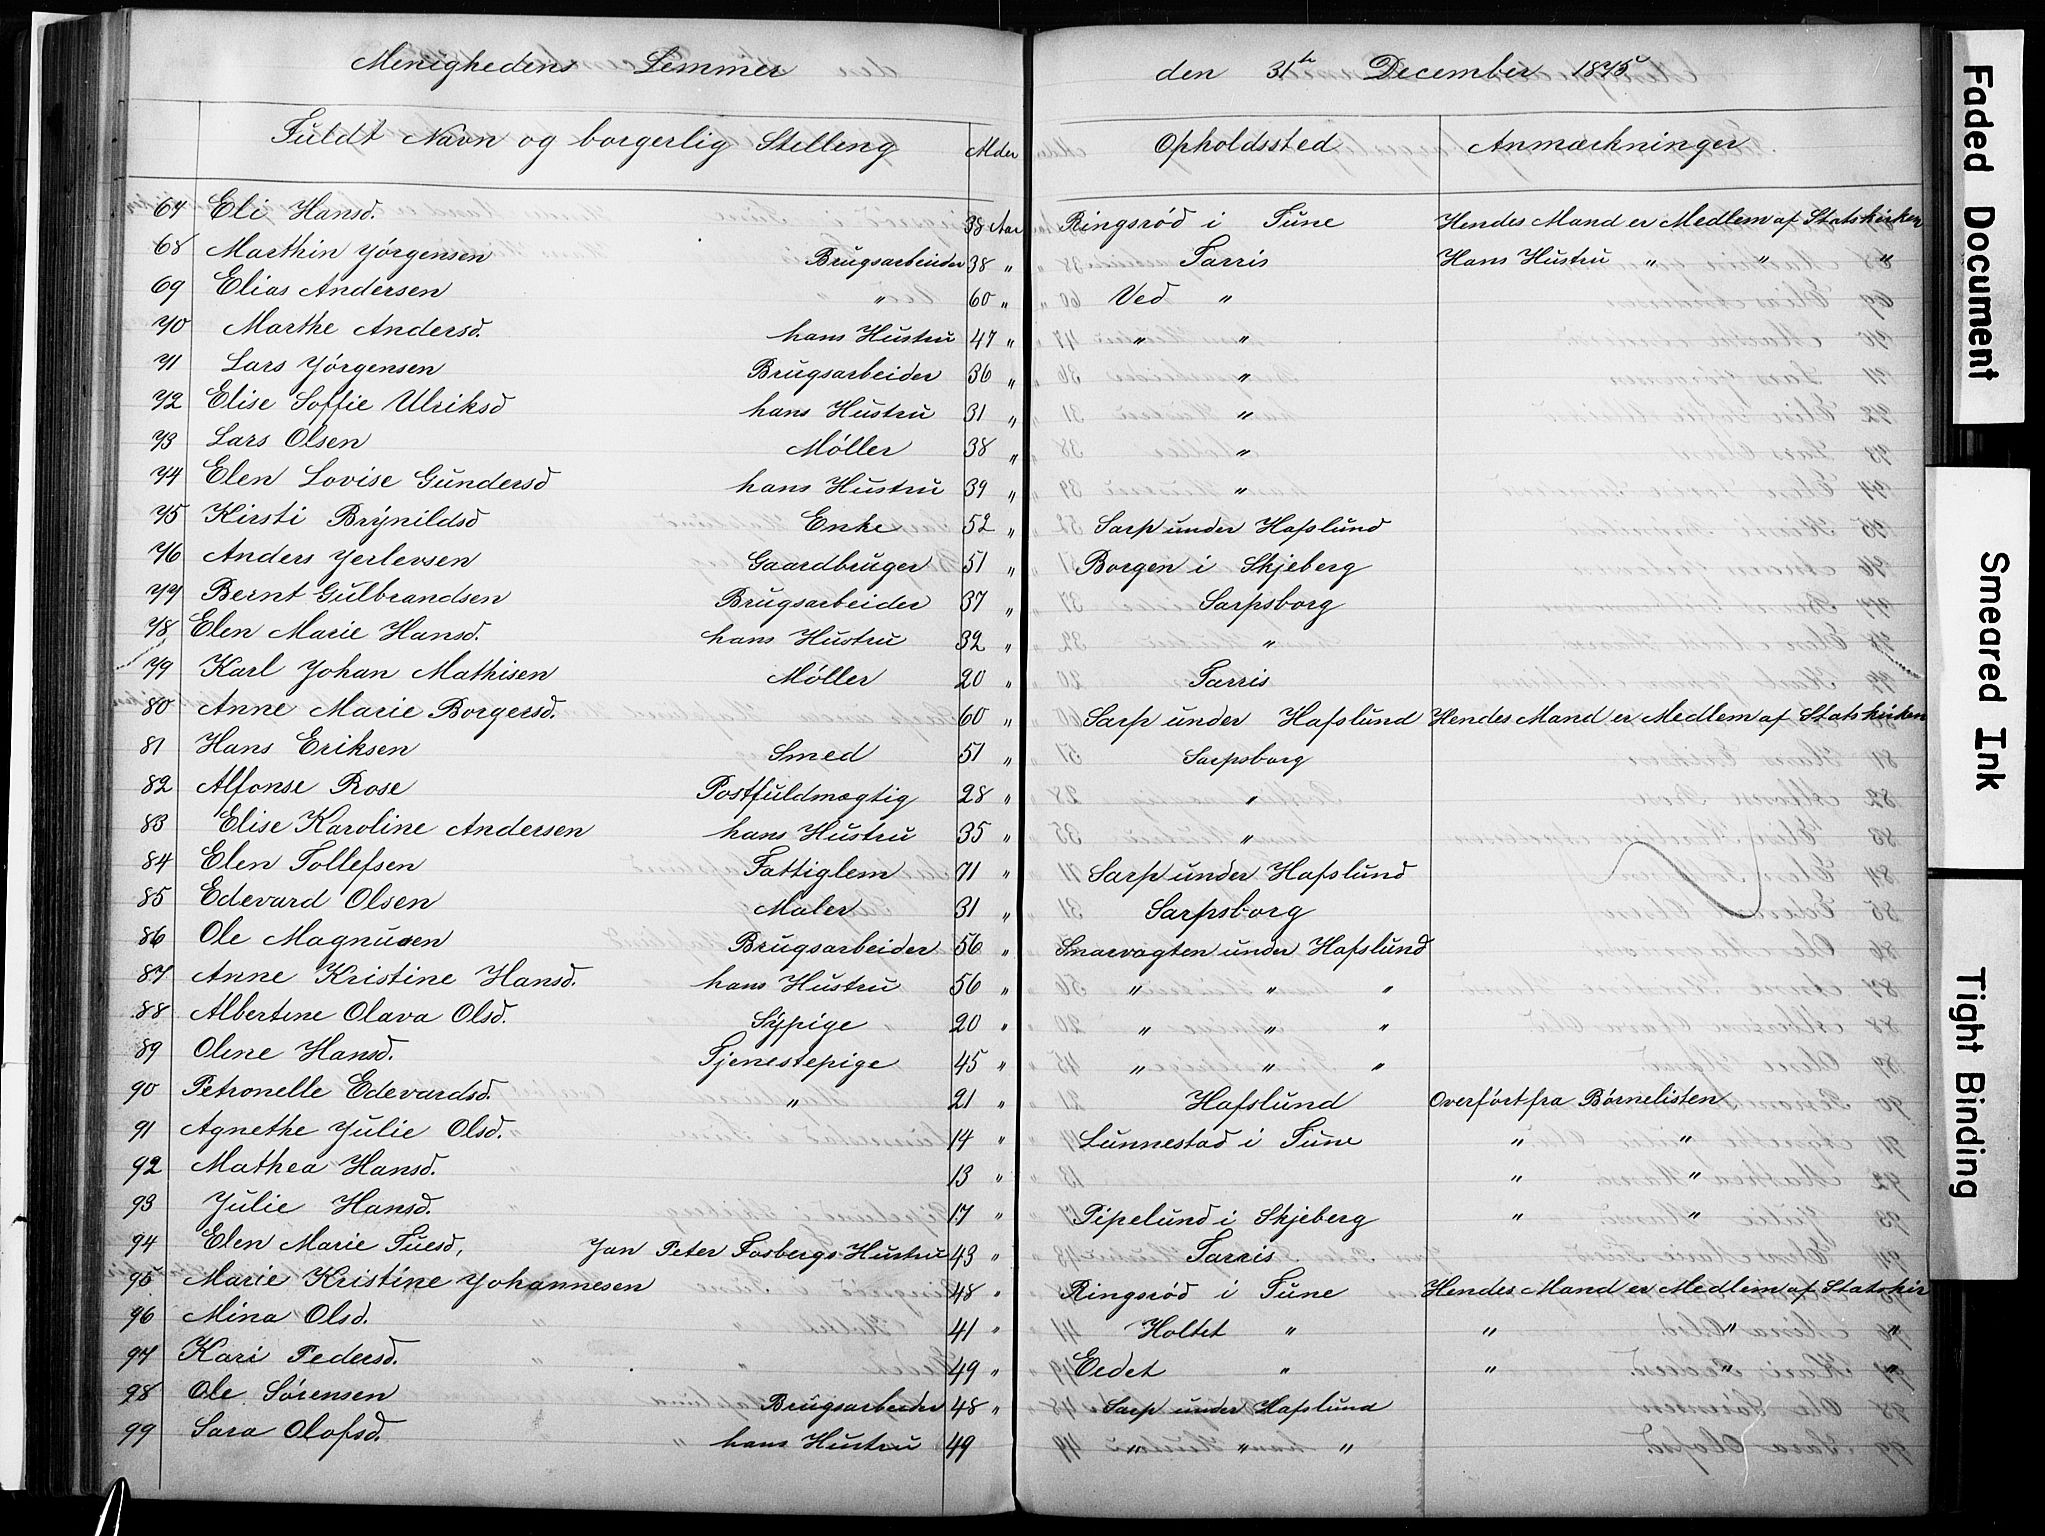 Menighedens Lemmer den 31te December 1875
Fuldt Navn og borgerlig Stilling Alder Opholdssted Anmærkninger
67 Eli Hansd. 38 Aar Ringsrød i Tune Hendes Mand er Medlem af Statskirken
68 Marthin Jørgensen Brugsarbeider 38 " Tarris Hans Hustru " " "
69 Elias Andersen " 60 " Ved "
70 Marthe Andersd. hans Hustru 47 " " "
71 Lars Jørgensen Brugsarbeider 36 " "
72 Elise Soffie Ulriksd hans Hustru 31 " "
73 Lars Olsen Møller 38 " "
74 Elen Lovise Gundersd hans Hustru 39 " "
75 Kirsti Brynildsd Enke 52 " Sarp under Hafslund
76 Anders Jerlevsen Gaardbruger 51 " Borgen i Skjeberg
77 Bernt Gulbrandsen Brugsarbeider 37 " Sarpsborg
78 Elen Marie Hansd. hans Hustru 32 " "
79 Karl Johan Mathisen Møller 20 " Tarris
80 Anne Marie Borgersd. 60 " Sarp under Hafslund Hendes Mand er Medlem af Statskirken
81 Hans Eriksen Smed 51 " Sarpsborg
82 Alfonse Rose Postfuldmægtig 28 " "
83 Elise Karoline Andersen hans Hustru 35 " "
84 Elen Tollefsen Fattiglem 71 " Sarp under Hafslund
85 Edevard Olsen Maler 31 " Sarpsborg
86 Ole Magnusen Brugsarbeider 56 " Snarvagten under Hafslund
87 Anne Kristine Hansd. hans Hustru 56 " " " "
88 Albertine Olava Olsd. Sypige 20 " " " "
89 Oline Hansd. Tjenestepige 45 " " " "
90 Petronelle Edevardsd. " 21 " Hafslund Overført fra Børnelisten
91 Agnethe Julie Olsd. 14 " Lunnestad i Tune " "
92 Mathea Hansd. 13 " " "
93 Julie Hansd. 17 " Pipelund i Skjeberg " "
94 Elen Marie Tuesd, Jan Peter Fosbergs Hustru 43 " Tarris
95 Marie Kristine Johannesen 48 " Ringsrød i Tune Hendes Mand er Medlem af Statskir
96 Mina Olsd. 41 " Holtet " " " "
97 Kari Pedersd. 49 " Eedet " " " "
98 Ole Sørensen Brugsarbeider 48 " Sarp under Hafslund
99 Sara Olofsd. hans Hustru 49 " " "
Faded Document
Smeared Ink
Tight Binding